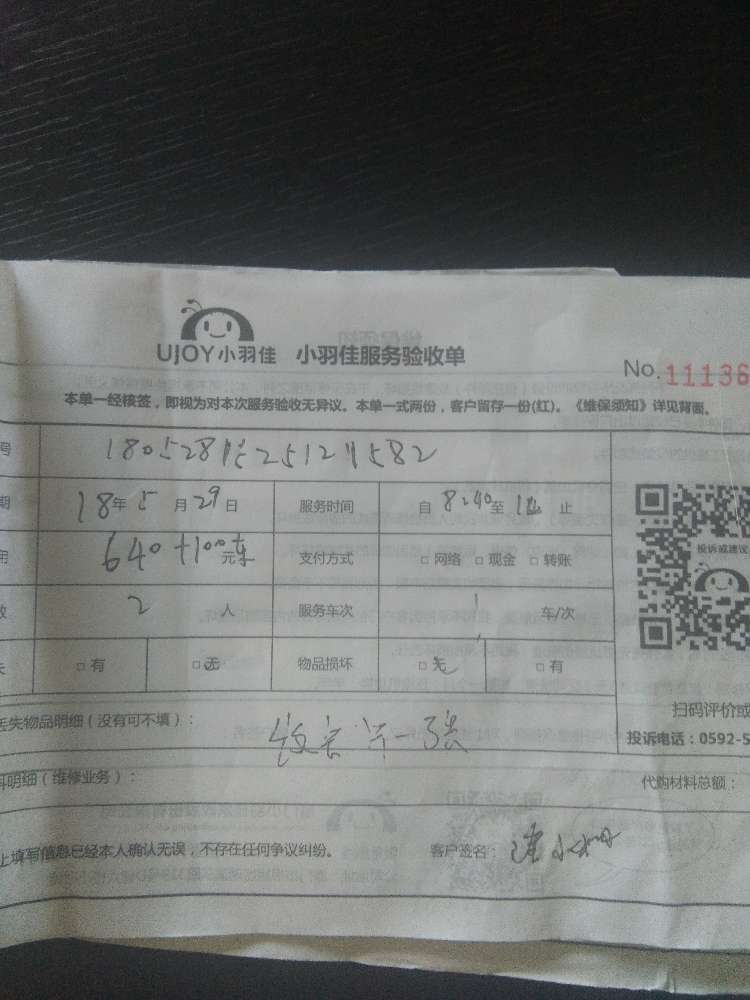 UJOY小羽佳 小羽佳服务验收单
No.11136
本单一经核签，即视为对本次服务验收无异议。本单一式两份，客户留存一份(红)。《维保须知》详见背面。
号
期 18年5月29日 服务时间 自8:40至 止
用 640+100元 支付方式 □网络 □现金 □转账
投诉或建议
数 2 人 服务车次 1 车/次
失 □有 □无 物品损坏 □无 □有
扫码评价或
丢失物品明细（没有可不填）： 一张
投诉电话：0592-5
料明细（维修业务）： 代购材料总额：
上填写信息已经本人确认无误，不存在任何争议纠纷。 客户签名：